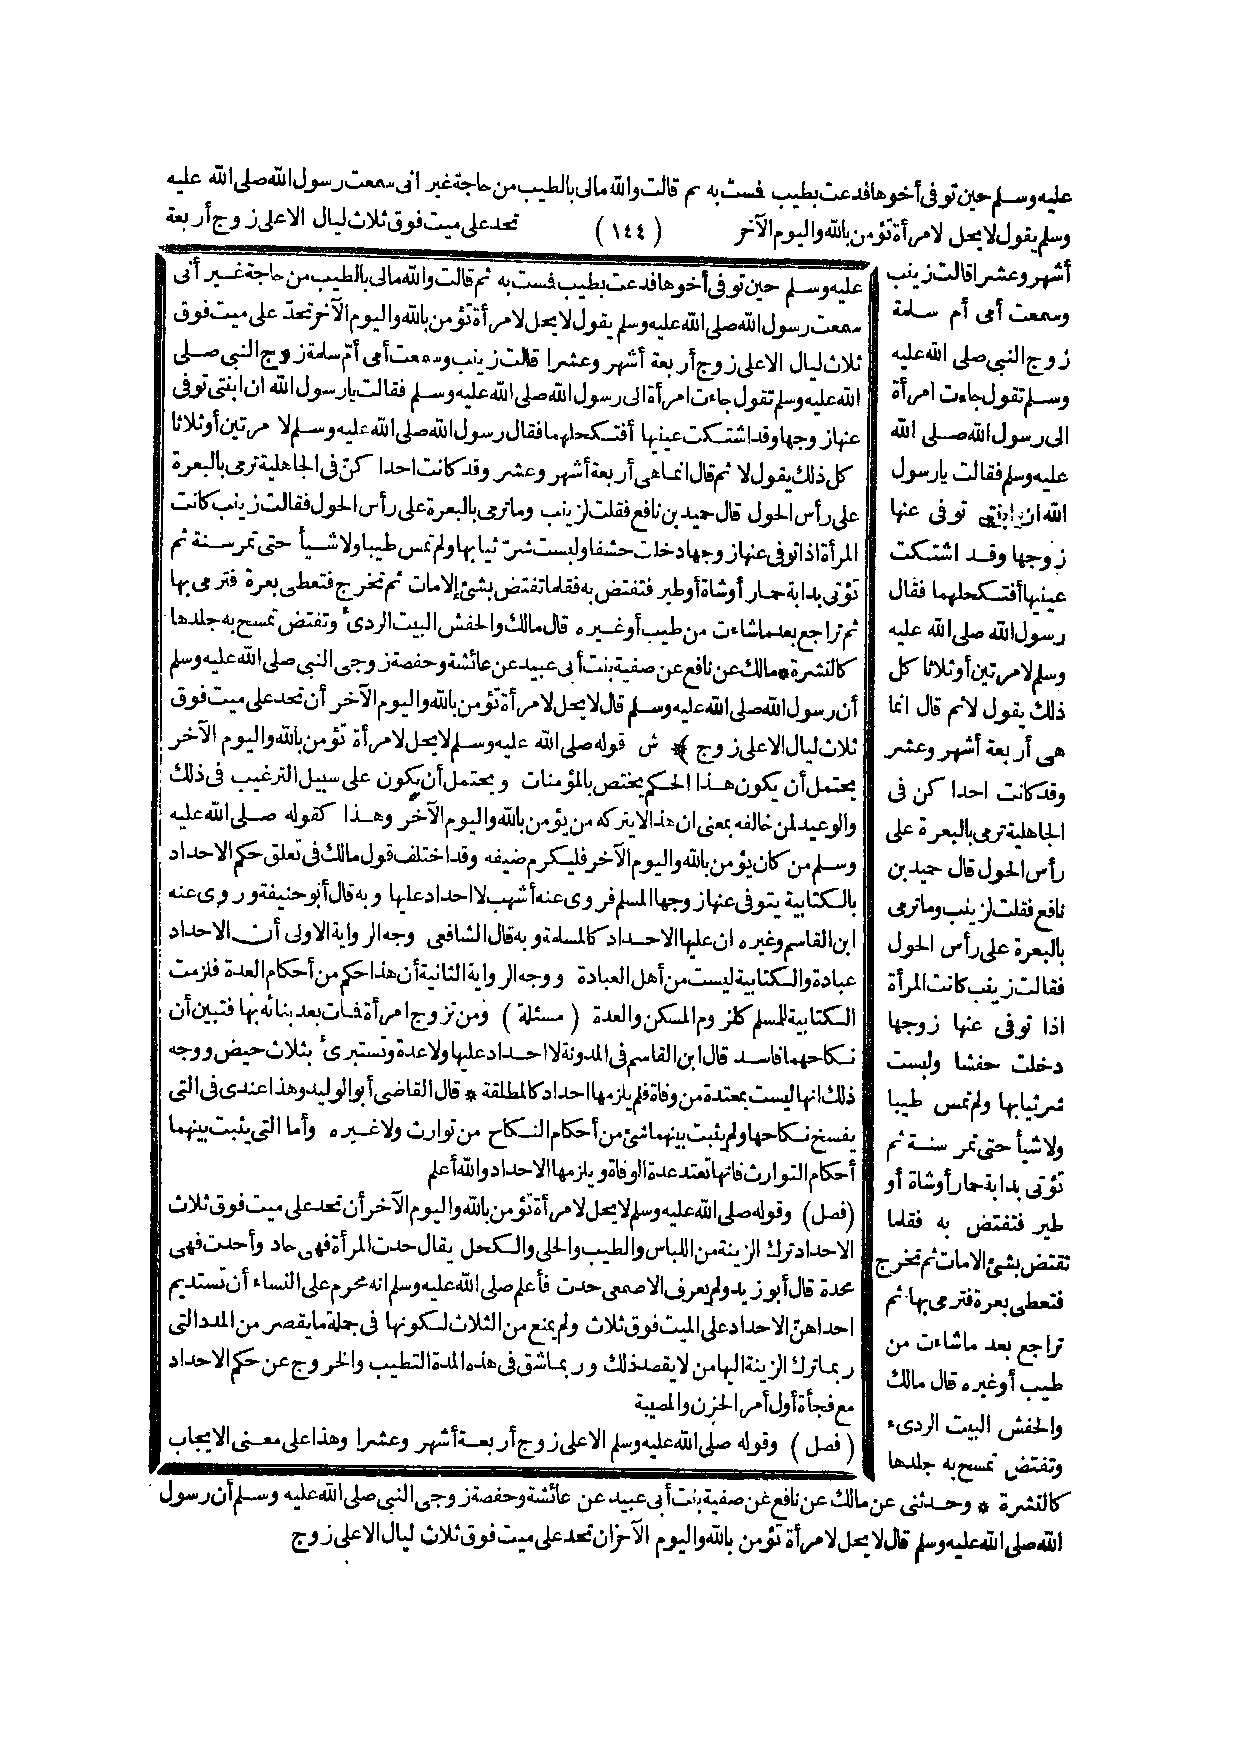 عليه وسلم حين توفى أخوها فدعت بطيب فمست به ثم قالت والله مالى بالطيب من حاجة غير انى سمعت رسول الله صلى الله عليه
وسلم يقول لا يحل لامرأة تؤمن بالله واليوم الآخر (١٤٤) تحد على ميت فوق ثلاث ليال الا على زوج أربعة
أشهر وعشرا قالت زينب
وسمعت أمى أم سلمة
زوج النبي صلى الله عليه
وسلم تقول جاءت امرأة
الى رسول الله صلى الله
عليه وسلم فقالت يارسول
الله ان ابنتى توفى عنها
زوجها وقد اشتكت
عينها أفتكحلهما فقال
رسول الله صلى الله عليه
وسلم لا مرتين أو ثلاثا كل
ذلك يقول لا ثم قال انما
هى أربعة أشهر وعشر
وقد كانت احداكن فى
الجاهلية ترمى بالبعرة على
رأس الحول قال حميد بن
نافع فقلت لزينب وما ترمى
بالبعرة على رأس الحول
فقالت زينب كانت المرأة
اذا توفى عنها زوجها
دخلت حفشا ولبست
شر ثيابها ولم تمس طيبا
ولا شيأ حتى تمر سنة ثم
تؤتى بدابة حمار أو شاة أو
طير فتفتض به فقلما
تفتض بشئ الا مات ثم تخرج
فتعطى بعرة فترمى بها ثم
تراجع بعد ماشاءت من
طيب أو غيره قال مالك
والحفش البيت الردىء
وتفتض تمسح به جلدها
كالنشرة * وحدثنى عن مالك عن نافع عن صفية بنت أبى عبيد عن عائشة وحفصة زوجى النبي صلى الله عليه وسلم أن رسول
الله صلى الله عليه وسلم قال لا يحل لامرأة تؤمن بالله واليوم الآخر ان تحد على ميت فوق ثلاث ليال الا على زوج
عليه وسلم حين توفى أخوها فدعت بطيب فمست به ثم قالت والله مالى بالطيب من حاجة غير أنى
سمعت رسول الله صلى الله عليه وسلم يقول لا يحل لامرأة تؤمن بالله واليوم الآخر تحد على ميت فوق
ثلاث ليال الا على زوج أربعة أشهر وعشرا قالت زينب وسمعت أمى أم سلمة زوج النبي صلى
الله عليه وسلم تقول جاءت امرأة الى رسول الله صلى الله عليه وسلم فقالت يارسول الله ان ابنتى توفى
عنها زوجها وقد اشتكت عينها أفتكحلهما فقال رسول الله صلى الله عليه وسلم لا مرتين أو ثلاثا
كل ذلك يقول لا ثم قال انما هى أربعة أشهر وعشر وقد كانت احداكن فى الجاهلية ترمى بالبعرة
على رأس الحول قال حميد بن نافع فقلت لزينب وما ترمى بالبعرة على رأس الحول فقالت زينب كانت
المرأة اذا توفى عنها زوجها دخلت حفشا ولبست شر ثيابها ولم تمس طيبا ولا شيأ حتى تمر سنة ثم
تؤتى بدابة حمار أو شاة أو طير فتفتض به فقلما تفتض بشئ إلا مات ثم تخرج فتعطى بعرة فترمى بها
ثم تراجع بعد ماشاءت من طيب أو غيره قال مالك والحفش البيت الردىء وتفتض تمسح به جلدها
كالنشرة * مالك عن نافع عن صفية بنت أبى عبيد عن عائشة وحفصة زوجى النبي صلى الله عليه وسلم
أن رسول الله صلى الله عليه وسلم قال لا يحل لامرأة تؤمن بالله واليوم الآخر أن تحد على ميت فوق
ثلاث ليال الا على زوج ﴾ ش قوله صلى الله عليه وسلم لا يحل لامرأة تؤمن بالله واليوم الآخر
يحتمل أن يكون هذا الحكم يختص بالمؤمنات ويحتمل أن يكون على سبيل الترغيب فى ذلك
والوعيد لمن خالفه بمعنى ان هذا لا يتركه من يؤمن بالله واليوم الآخر وهذا كقوله صلى الله عليه
وسلم من كان يؤمن بالله واليوم الآخر فليكرم ضيفه وقد اختلف قول مالك فى تعلق حكم الاحداد
بالكتابية يتوفى عنها زوجها المسلم فروى عنه أشهب لا احداد عليها وبه قال أبو حنيفة وروى عنه
ابن القاسم وغيره ان عليها الاحداد كالمسلمة وبه قال الشافعى وجه الرواية الاولى أن الاحداد
عبادة والكتابية ليست من أهل العبادة ووجه الرواية الثانية أن هذا حكم من أحكام العدة فلزمت
الكتابية للمسلم كلزوم المسكن والعدة (مسئلة) ومن تزوج امرأة فمات بعد بنائه بها فتبين أن
نكاحهما فاسد قال ابن القاسم فى المدونة لا احداد عليها ولا عدة وتستبرىء بثلاث حيض ووجه
ذلك انها ليست بمعتدة من وفاة فلم يلزمها احداد كالمطلقة * قال القاضى أبو الوليد وهذا عندى فى التى
يفسخ نكاحها ولم يثبت بينهما شئ من أحكام النكاح من توارث ولا غيره وأما التى يثبت بينهما
أحكام التوارث فانها تعتد عدة الوفاة ويلزمها الاحداد والله أعلم
(فصل) وقوله صلى الله عليه وسلم لا يحل لامرأة تؤمن بالله واليوم الآخر أن تحد على ميت فوق ثلاث
الاحداد ترك الزينة من اللباس والطيب والحلى والكحل يقال حدت المرأة فهى حاد وأحدت فهى
محدة قال أبو زيد ولم يعرف الاصمعى حدت فأعلم صلى الله عليه وسلم انه محرم على النساء أن تستديم
احداهن الاحداد على الميت فوق ثلاث ولم يمنع من الثلاث لكونها فى جملة ما يقصر من المدد التى
ربما ترك الزينة اليها من لا يقصد ذلك وربما شق فى هذه المدة التطيب والخروج عن حكم الاحداد
مع فجأة أول أمر الحزن والمصيبة
(فصل) وقوله صلى الله عليه وسلم الا على زوج أربعة أشهر وعشرا وهذا على معنى الايجاب